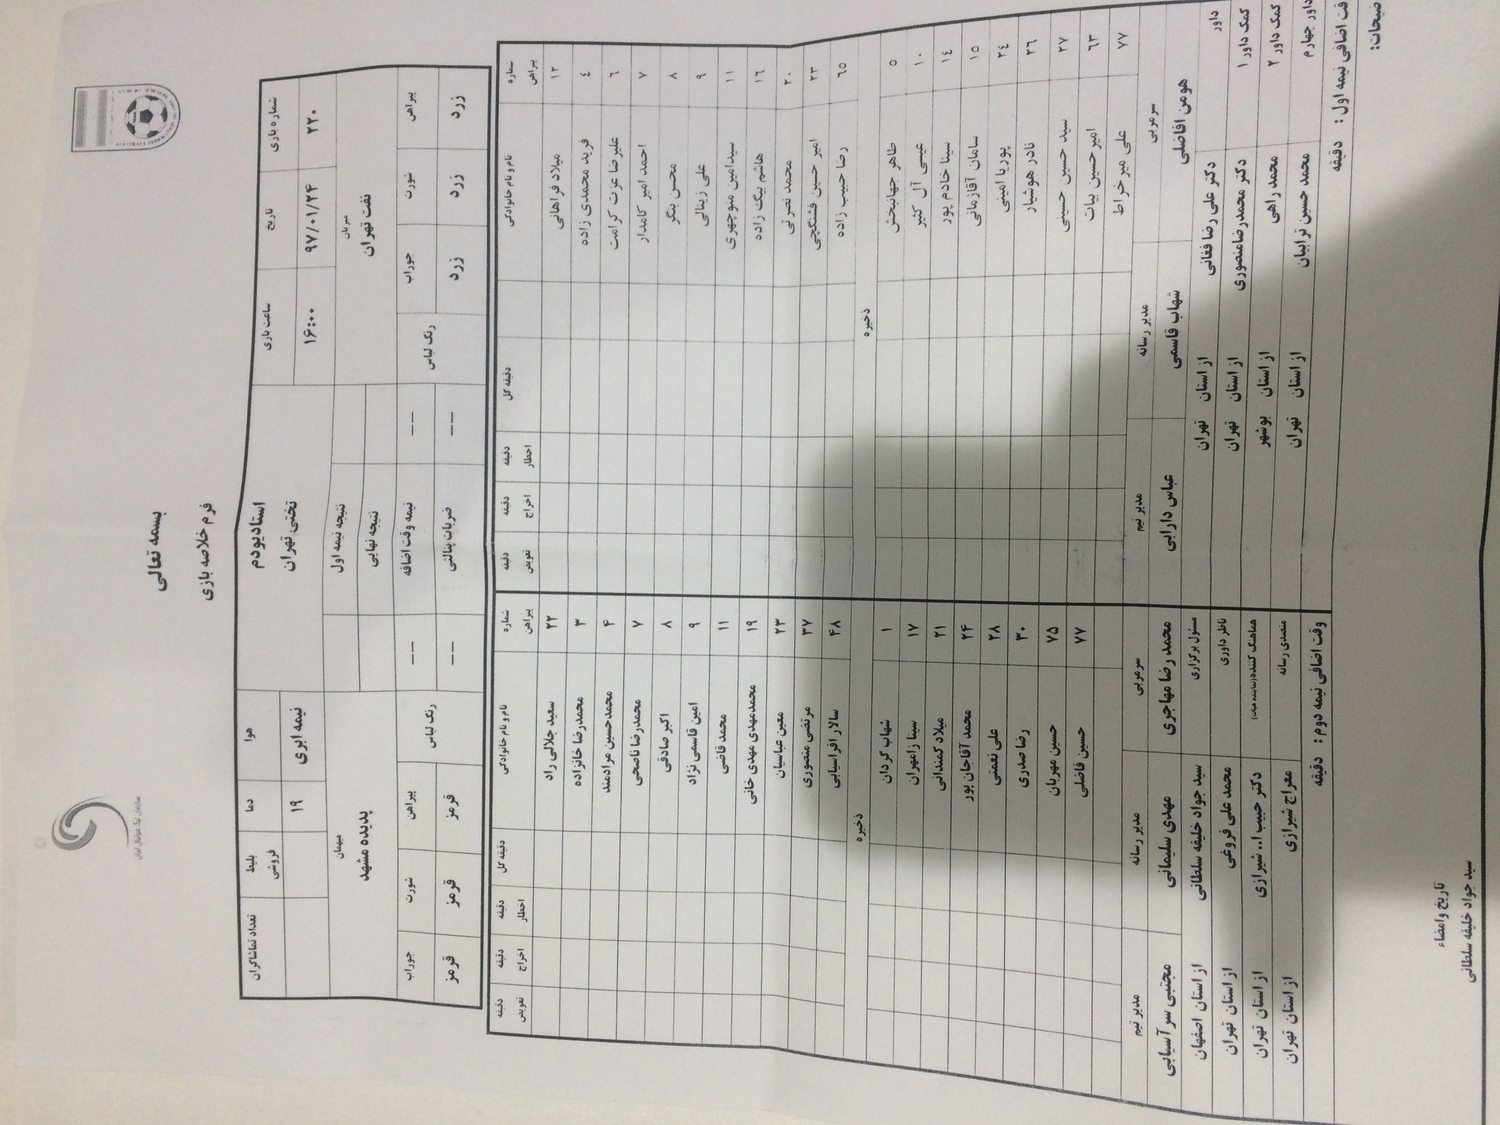 بسمه تعالی
فرم خلاصه بازی
شماره بازی تاریخ ساعت بازی استادیوم هوا دما بلیط فروشی تعداد تماشاگران
۲۲۰ ۹۷/۰۱/۲۴ ۱۶:۰۰ تختی تهران نیمه ابری ۱۹
میزبان نتیجه نیمه اول میهمان
نفت تهران نتیجه نهایی پدیده مشهد
پیراهن شورت جوراب رنگ لباس -- نیمه وقت اضافه -- رنگ لباس پیراهن شورت جوراب
زرد زرد زرد -- ضربات پنالتی -- قرمز قرمز قرمز
شماره پیراهن نام و نام خانوادگی دقیقه گل دقیقه اخطار دقیقه اخراج دقیقه تعویض شماره پیراهن نام و نام خانوادگی دقیقه گل دقیقه اخطار دقیقه اخراج دقیقه تعویض
۱۲ میلاد فراهانی ۲۲ سعید جلالی راد
٤ فرید محمدی زاده ۳ محمدرضا خانزاده
٦ علیرضا عزت کرامت ۴ محمدحسین مرادمند
۷ احمد امیر کامدار ۷ محمدرضا ناصحی
۸ محسن بنگر ۸ اکبر صادقی
۹ علی زینالی ۹ امین قاسمی نژاد
۱۱ سیدامین منوچهری ۱۱ محمد قاضی
۱٦ هاشم بیگ زاده ۱۹ محمدمهدی مهدی خانی
۲۰ محمد نصرتی ۲۳ معین عباسیان
۲۳ امیر حسین فشنگچی ۳۷ مرتضی منصوری
٦٥ رضا حبیب زاده ۴۸ سالار افراسیابی
ذخیره ذخیره
٥ طاهر جهانبخش ۱ شهاب گردان
۱۰ عیسی آل کثیر ۱۷ سینا زامهران
۱٤ سینا خادم پور ۲۱ میلاد کمندانی
۱٥ سامان آقازمانی ۲۴ محمد آقاجان پور
۲٤ پوریا امینی ۲۸ علی نعمتی
۲٦ نادر هوشیار ۳۰ رضا صدری
۲۷ سید حسین حسینی ۷۵ حسین مهربان
٦۳ امیر حسین بیات ۷۷ حسین فاضلی
۷۷ علی میر خراط
سرمربی مدیر رسانه مدیر تیم سرمربی مدیر رسانه مدیر تیم
هومن افاضلی شهاب قاسمی عباس دارابی محمد رضا مهاجری مهدی سلیمانی مجتبی سر آسیابی
داور دکتر علی رضا فغانی از استان تهران مسئول برگزاری سید جواد خلیفه سلطانی از استان اصفهان
کمک داور ۱ دکتر محمدرضا منصوری از استان تهران ناظر داوری محمد علی فروغی از استان تهران
کمک داور ۲ محمد راهی از استان بوشهر هماهنگ کننده(نماینده هیات) دکتر حبیب ا.. شیرازی از استان تهران
داور چهارم محمد حسین ترابیان از استان تهران متصدی رسانه معراج شیرازی از استان تهران
وقت اضافی نیمه اول : دقیقه وقت اضافی نیمه دوم : دقیقه
ضیحات:
تاریخ وامضاء
سید جواد خلیفه سلطانی